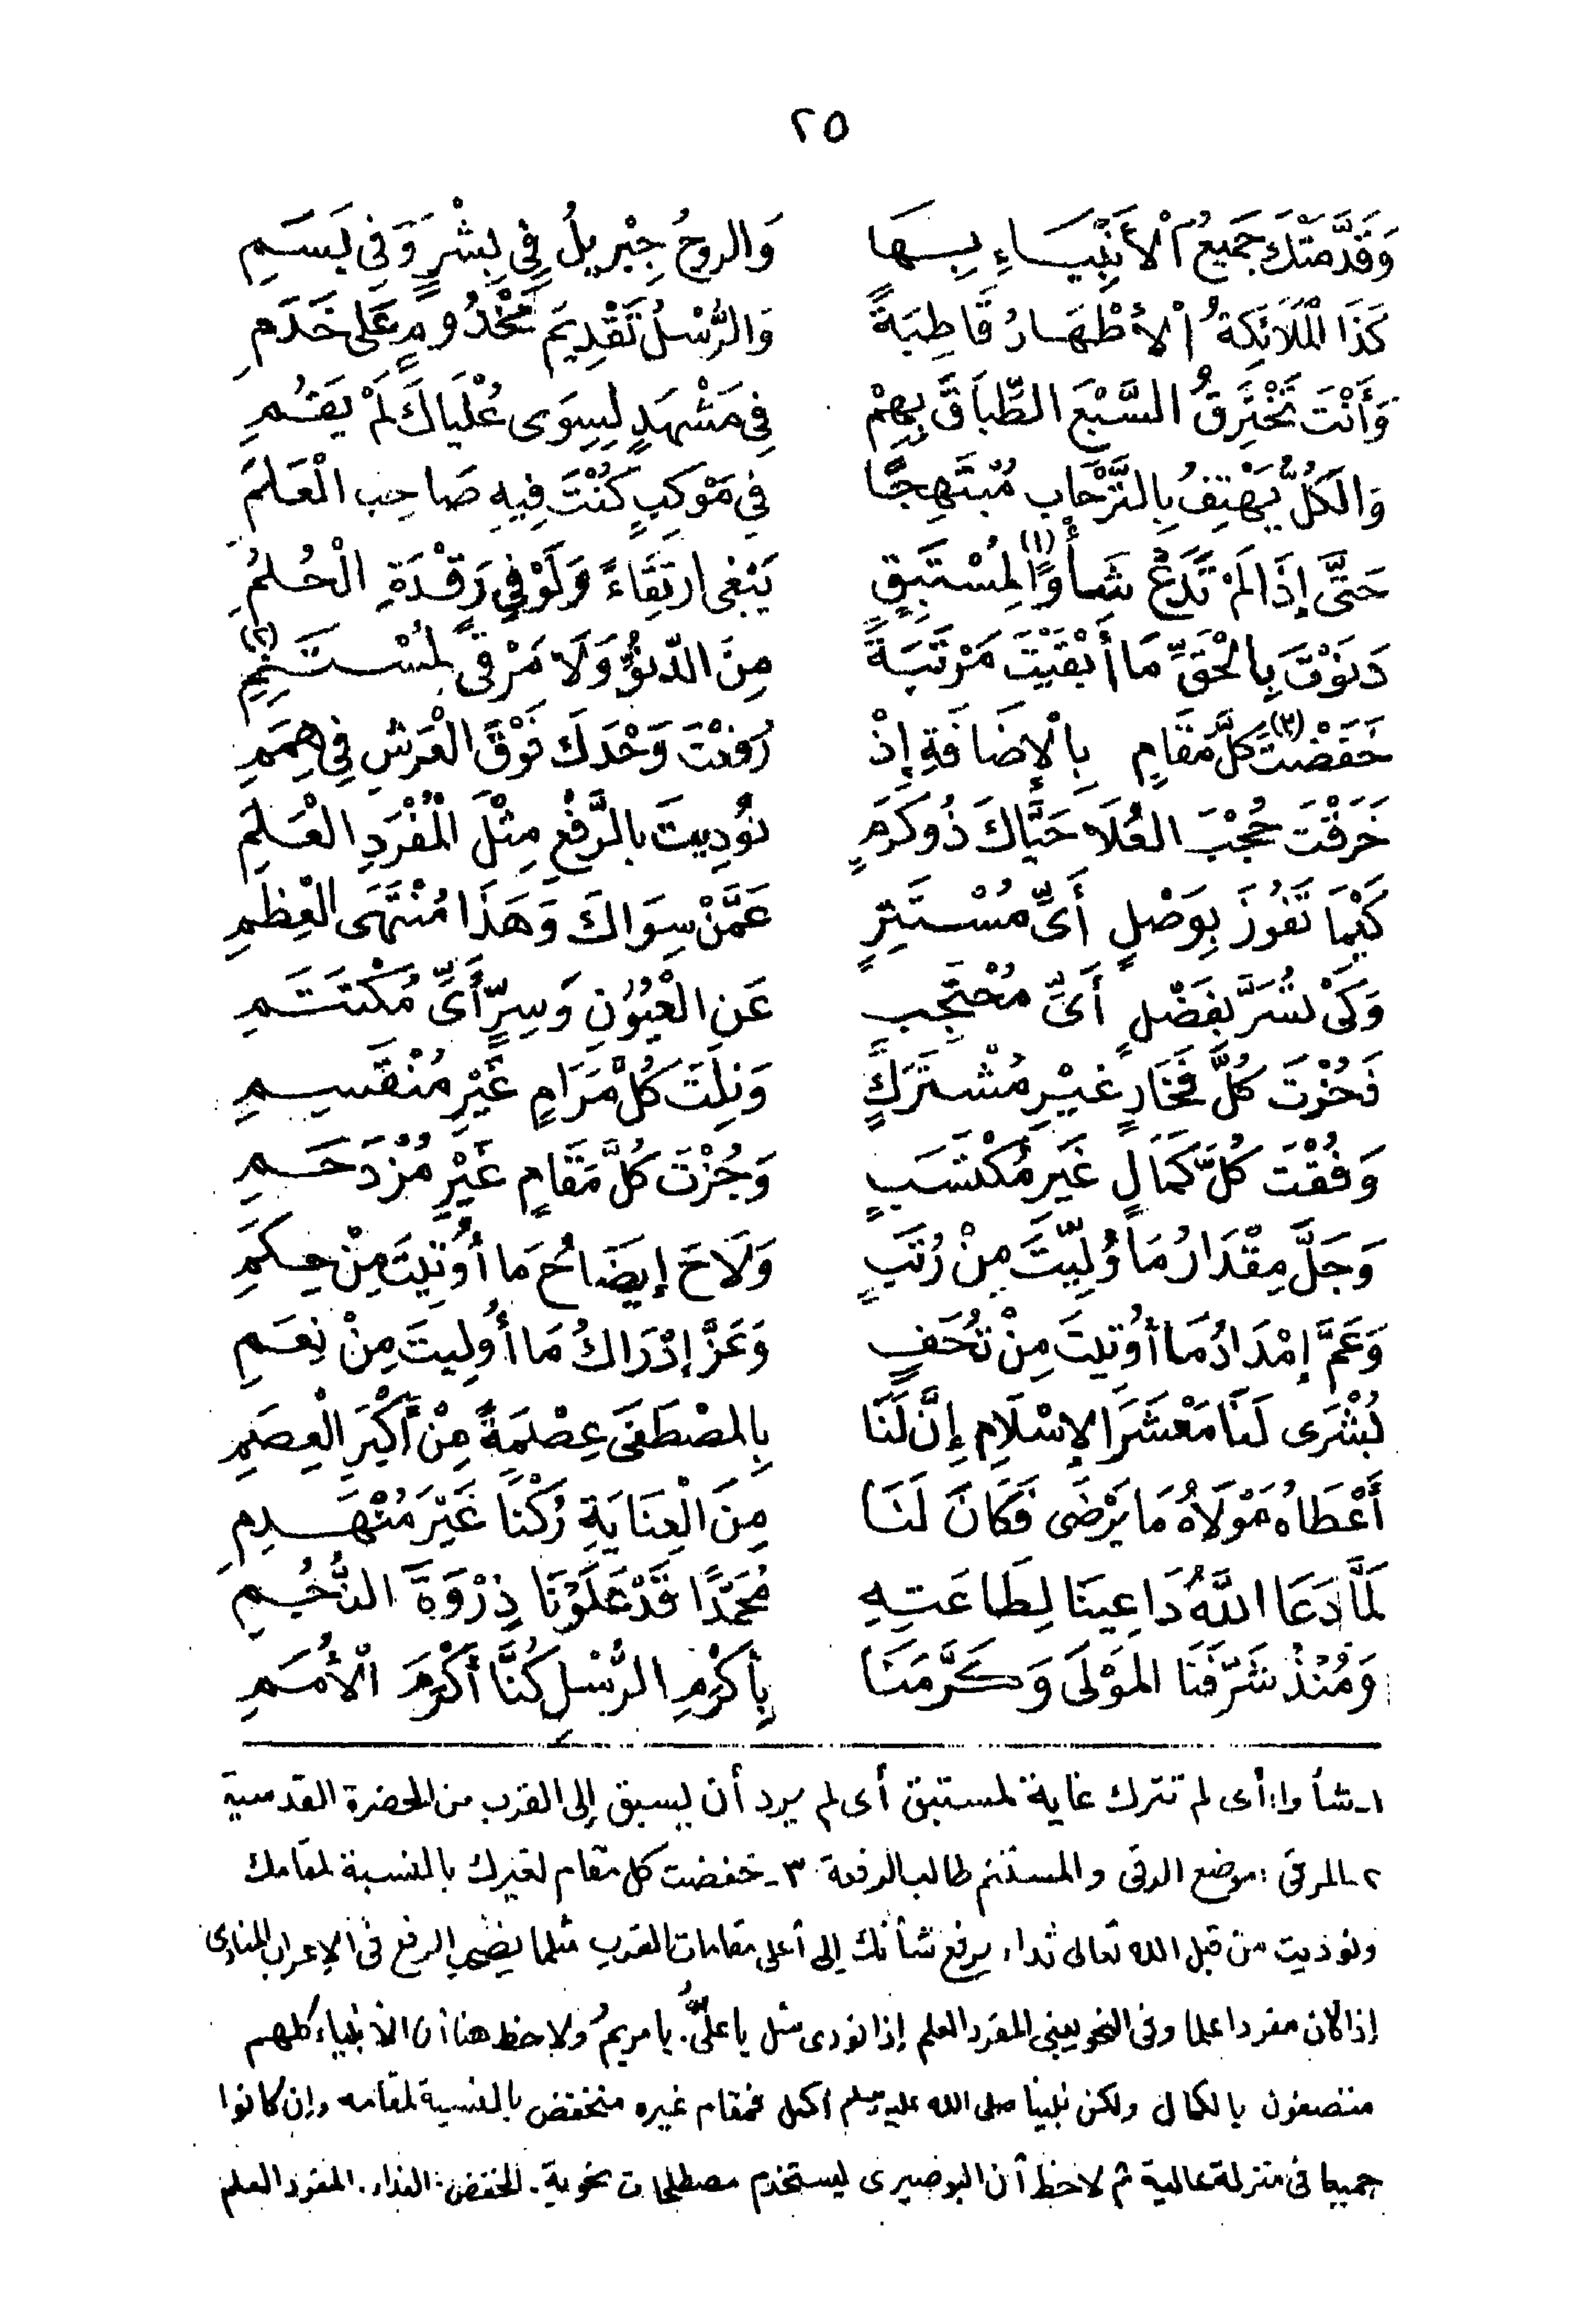 ٢٥
وَقَدَّمَتْكَ جَمِيعُ الْأَنْبِيَاءِ بِهَا وَالرُوحُ جِبْرِيلُ فِي بِشْرٍ وَفِي بَسَمِ
كَذَا الْمَلَائِكَةُ الْأَطْهَارُ قَاطِبَةً وَالرُّسْلُ تَقْدِيمَ مَخْدُومٍ عَلى خَدَمِ
وَأَنْتَ تَخْتَرِقُ السَّبْعَ الطِّبَاقَ بِهِمْ فِي مَشْهَدٍ لِسِوَى عُلْيَاكَ لَمْ يَقُمِ
وَالكُلُّ يَهْتِفُ بِالتَّرْحَابِ مُبْتَهِجًا فِي مَوْكَبٍ كُنْتَ فِيهِ صَاحِب الْعَلَمِ
حَتَّى إِذَا لَمْ تَدَعْ شَأْوًا (١) لِمُسْتَبِقٍ يَبْغِي ارْتِقَاءً وَلَوْ فِي رَقْدَةِ الْحُلُمِ
دَنَوْتَ بِالْحَقِّ مَا أَبْقَيْتَ مَرْتَبَةً مِنَ الدُّنُوِّ وَلَا مَرْقًى لِمُسْتَنِمِ (٢)
خَفَضْتَ (٣) كُلَّ مَقَامٍ بِالْإِضَافَةِ إِذْ رُفِعْتَ وَحْدَكَ فَوْقَ الْعَرْشِ فِي هِمَمِ
خَرَقْتَ حُجْبَ العُلَا حَيَّاكَ ذُو كَرَمٍ نُودِيتَ بالرَّفْعِ مِثْلَ الْمُفْرَدِ الْعَلَمِ
كَيْمَا تَفُوزَ بِوَصْلٍ أَىِّ مُسْتَتِرٍ عَمَّنْ سِوَاكَ وَهَذَا مُنْتَهَى الْعِظَمِ
وَكَىْ تُسَرَّ بِفَضْلٍ أَىِّ مُحْتَجِبٍ عَنِ الْعُيُونِ وَسِرٍّ أَىِّ مُكْتَتَمِ
فَحُزْتَ كُلَّ فَخَارٍ غَيْرِ مُشْتَرَكٍ وَنِلْتَ كُلَّ مَرَامٍ غَيْرِ مُنْقَسِمِ
وَفُقْتَ كُلَّ كَمَالٍ غَيْرِ مُكْتَسَبٍ وَجُزْتَ كُلَّ مَقَامٍ غَيْرِ مُزْدَحَمِ
وَجَلَّ مِقْدَارُ مَا وُلِّيتَ مِنْ رُتَبٍ وَلَاحَ إِيضَاحُ مَا أُوتِيتَ مِنْ حِكَمِ
وَعَمَّ إِمْدَادُ مَا أُوتِيتَ مِنْ تُحَفٍ وَعَزَّ إِدْرَاكُ مَا أُولِيتَ مِنْ نِعَمِ
بُشْرَى لَنَا مَعْشَرَ الإِسْلَامِ إِنَّ لَنَا بِالمصْطَفَى عِصْمَةً مِنْ أَكْبَرِ الْعِصَمِ
أَعْطَاهُ مَوْلَاهُ مَا يَرْضَى فَكَانَ لَنَا مِنَ الْعِنَايَةِ رُكْنًا غَيْرَ مُنْهَدِمِ
لَمَّا دَعَا اللَّهُ دَاعِينَا لِطَاعَتِهِ مُحَمَّدًا قَدْ عَلَوْنَا ذِرْوَةَ النُّجُمِ
وَمُنْذُ شَرَّفَنَا المَوْلَى وَكَرَّمَنَا بِأَكْرَمِ الرُّسْلِ كُنَّا أَكْرَمَ الْأُمَمِ
١- شأوا: أى لم تترك غاية لمستبق أى لم يرد أن يسبق إلى القرب من الحضرة القدسية
٢- المرقى: موضع الرقى والمستنم طالب الرفعة ٣- خفضت كل مقام لغيرك بالنسبة لمقامك
ونوديت من قبل الله تعالى نداء يرفع شأنك إلى أعلى مقامات القرب مثلما يضم الرفع فى الإعراب المنادى
إذا كان مفردا علما وفى النحو يبنى المفرد العلم إذا نودى مثل يا علىُّ. يا مريمُ ولاحظ هنا أن الأنبياء كلهم
متصفون بالكمال ولكن نبينا صلى الله عليه وسلم أكمل فمقام غيره منخفض بالنسبة لمقامه وإن كانوا
جميعا فى منزلة عالية ثم لاحظ أن البوصيرى يستخدم مصطلحات نحوية. الخفض: النداء. المفرد العلم